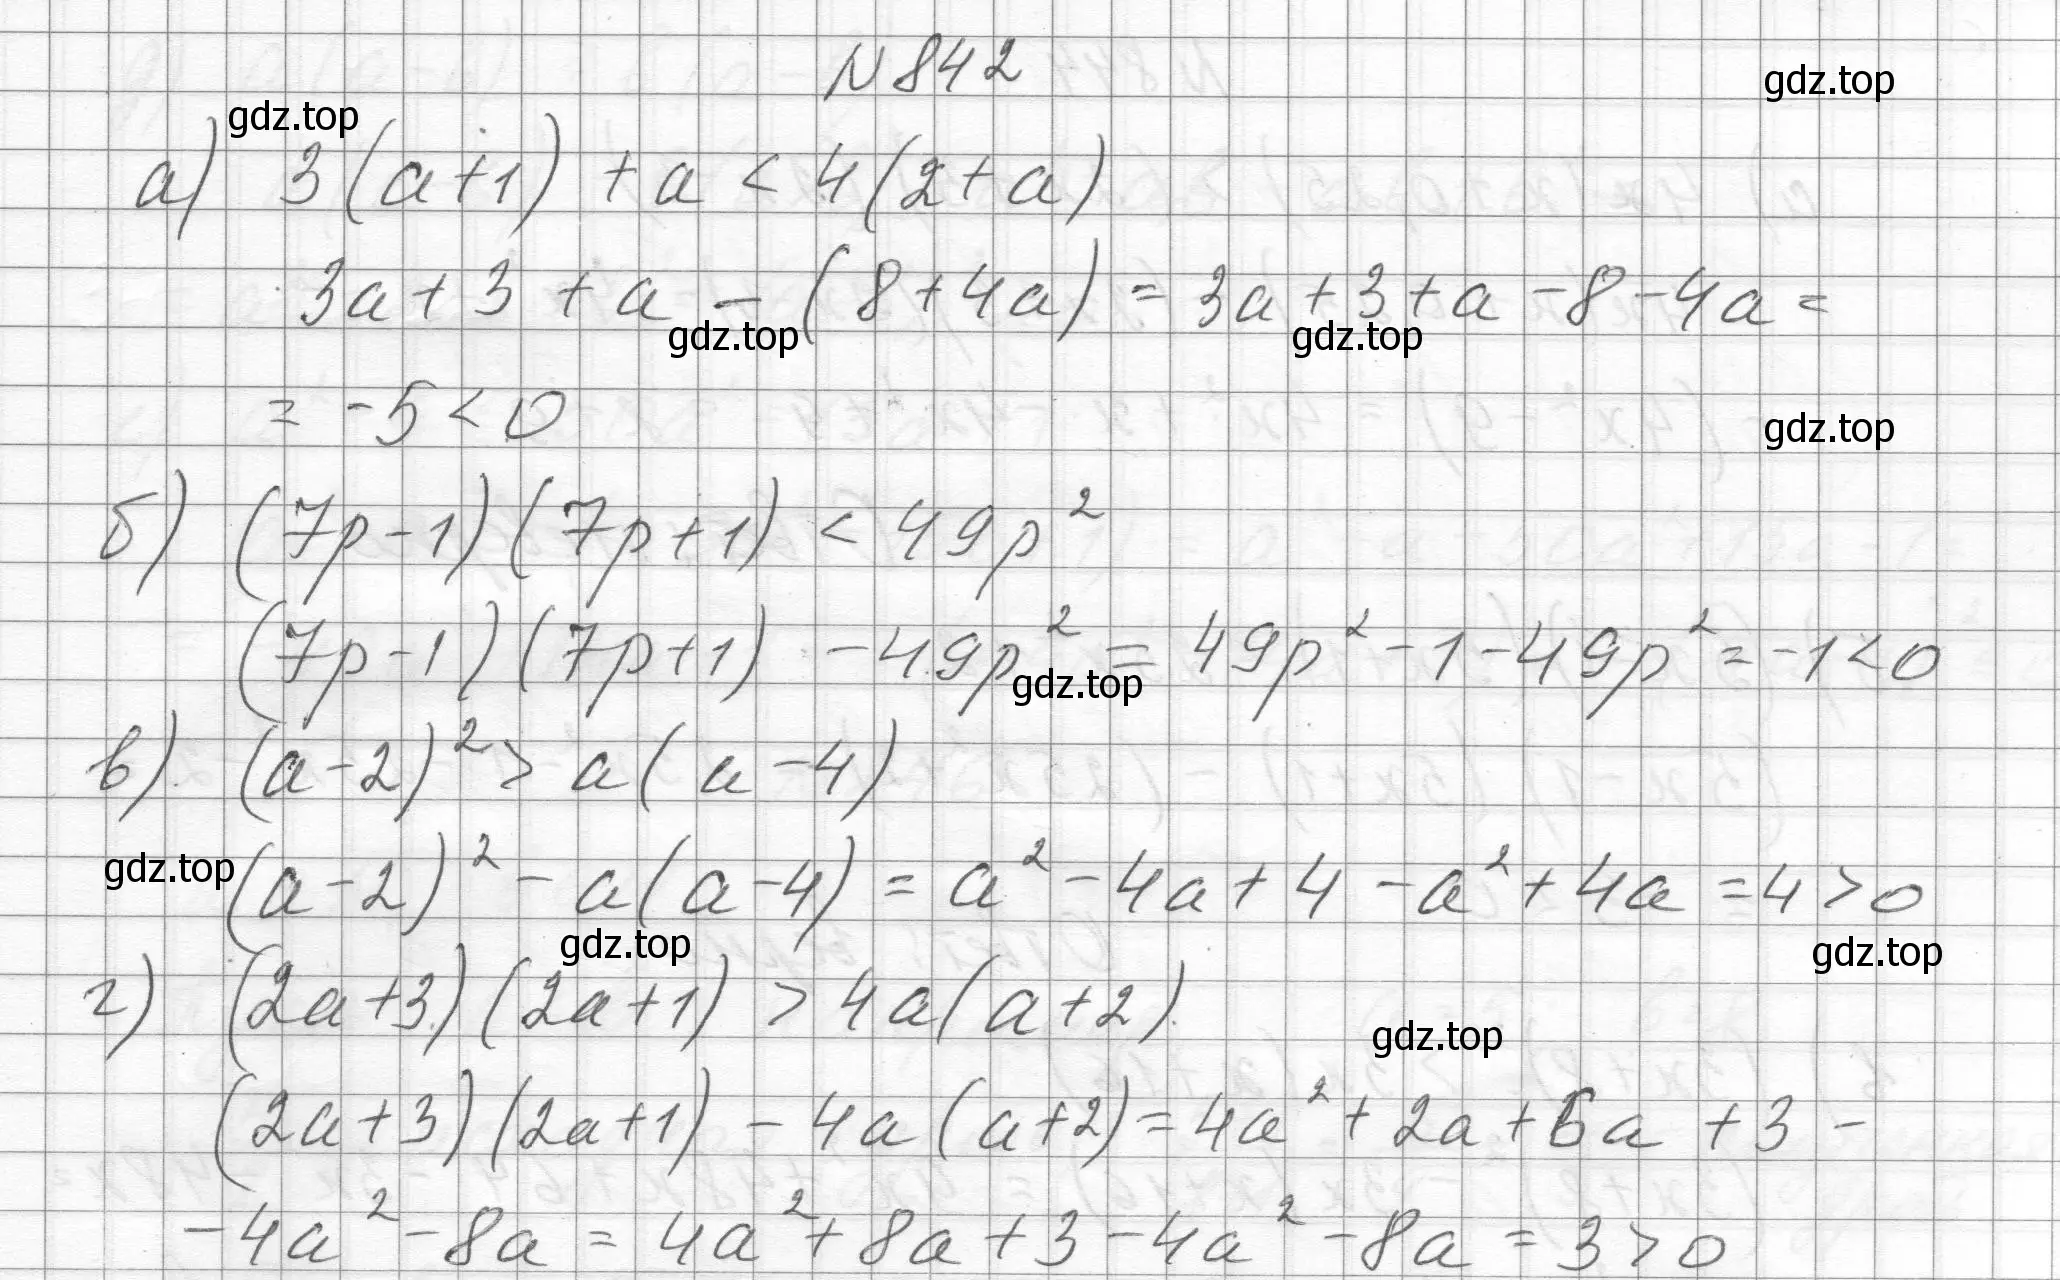 N 842
а) 3(a+1) + a < 4(2+a)
3a+3+a-(8+4a) = 3a+3+a-8-4a =
= -5 < 0
б) (7p-1)(7p+1) < 49p²
(7p-1)(7p+1) - 49p² = 49p²-1-49p² = -1<0
в) (a-2)² > a(a-4)
(a-2)² - a(a-4) = a²-4a+4-a²+4a = 4 > 0
г) (2a+3)(2a+1) > 4a(a+2)
(2a+3)(2a+1) - 4a(a+2) = 4a²+2a+6a+3-
-4a²-8a = 4a²+8a+3-4a²-8a = 3>0
gdz.top
gdz.top
gdz.top
gdz.top
gdz.top
gdz.top
gdz.top
gdz.top
gdz.top
gdz.top